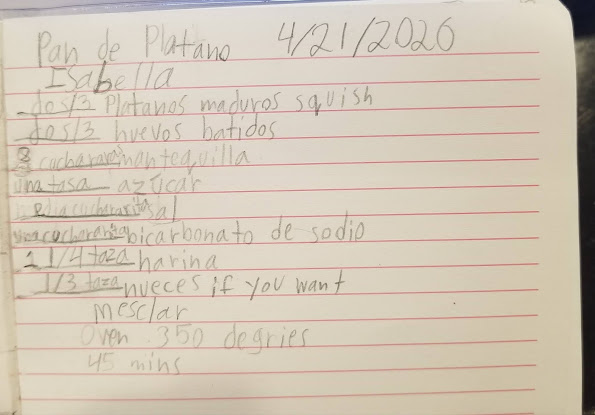 Pan de Platano 4/21/2020
Isabella
dos/3 Platanos maduros squish
dos/3 huevos batidos
cucharara mantequilla
una tasa azucar
media cucharita sal
una cucharara bicarbonato de sodio
1 1/4 taza harina
1/3 taza nueces if you want
mesclar
Oven 350 degries
45 mins